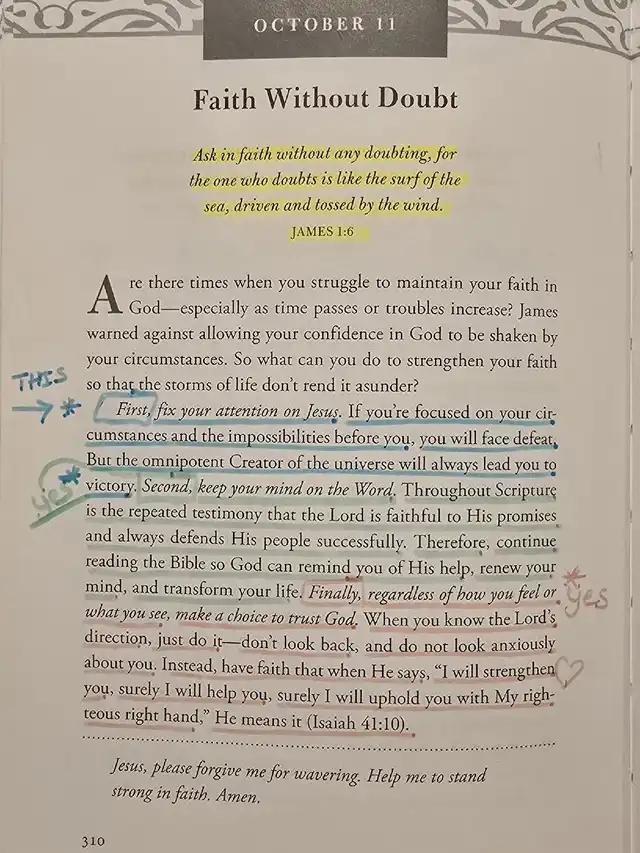 OCTOBER 11
Faith Without Doubt
Ask in faith without any doubting, for
the one who doubts is like the surf of the
sea, driven and tossed by the wind.
JAMES 1:6
Are there times when you struggle to maintain your faith in
God—especially as time passes or troubles increase? James
warned against allowing your confidence in God to be shaken by
your circumstances. So what can you do to strengthen your faith
so that the storms of life don't rend it asunder?
THIS
→ *
First, fix your attention on Jesus. If you're focused on your cir-
cumstances and the impossibilities before you, you will face defeat.
But the omnipotent Creator of the universe will always lead you to
yes *
victory. Second, keep your mind on the Word. Throughout Scripture
is the repeated testimony that the Lord is faithful to His promises
and always defends His people successfully. Therefore, continue
reading the Bible so God can remind you of His help, renew your
mind, and transform your life. Finally, regardless of how you feel or
* yes
what you see, make a choice to trust God. When you know the Lord's
direction, just do it—don't look back, and do not look anxiously
about you. Instead, have faith that when He says, "I will strengthen
you, surely I will help you, surely I will uphold you with My righ-
teous right hand," He means it (Isaiah 41:10).
Jesus, please forgive me for wavering. Help me to stand
strong in faith. Amen.
310